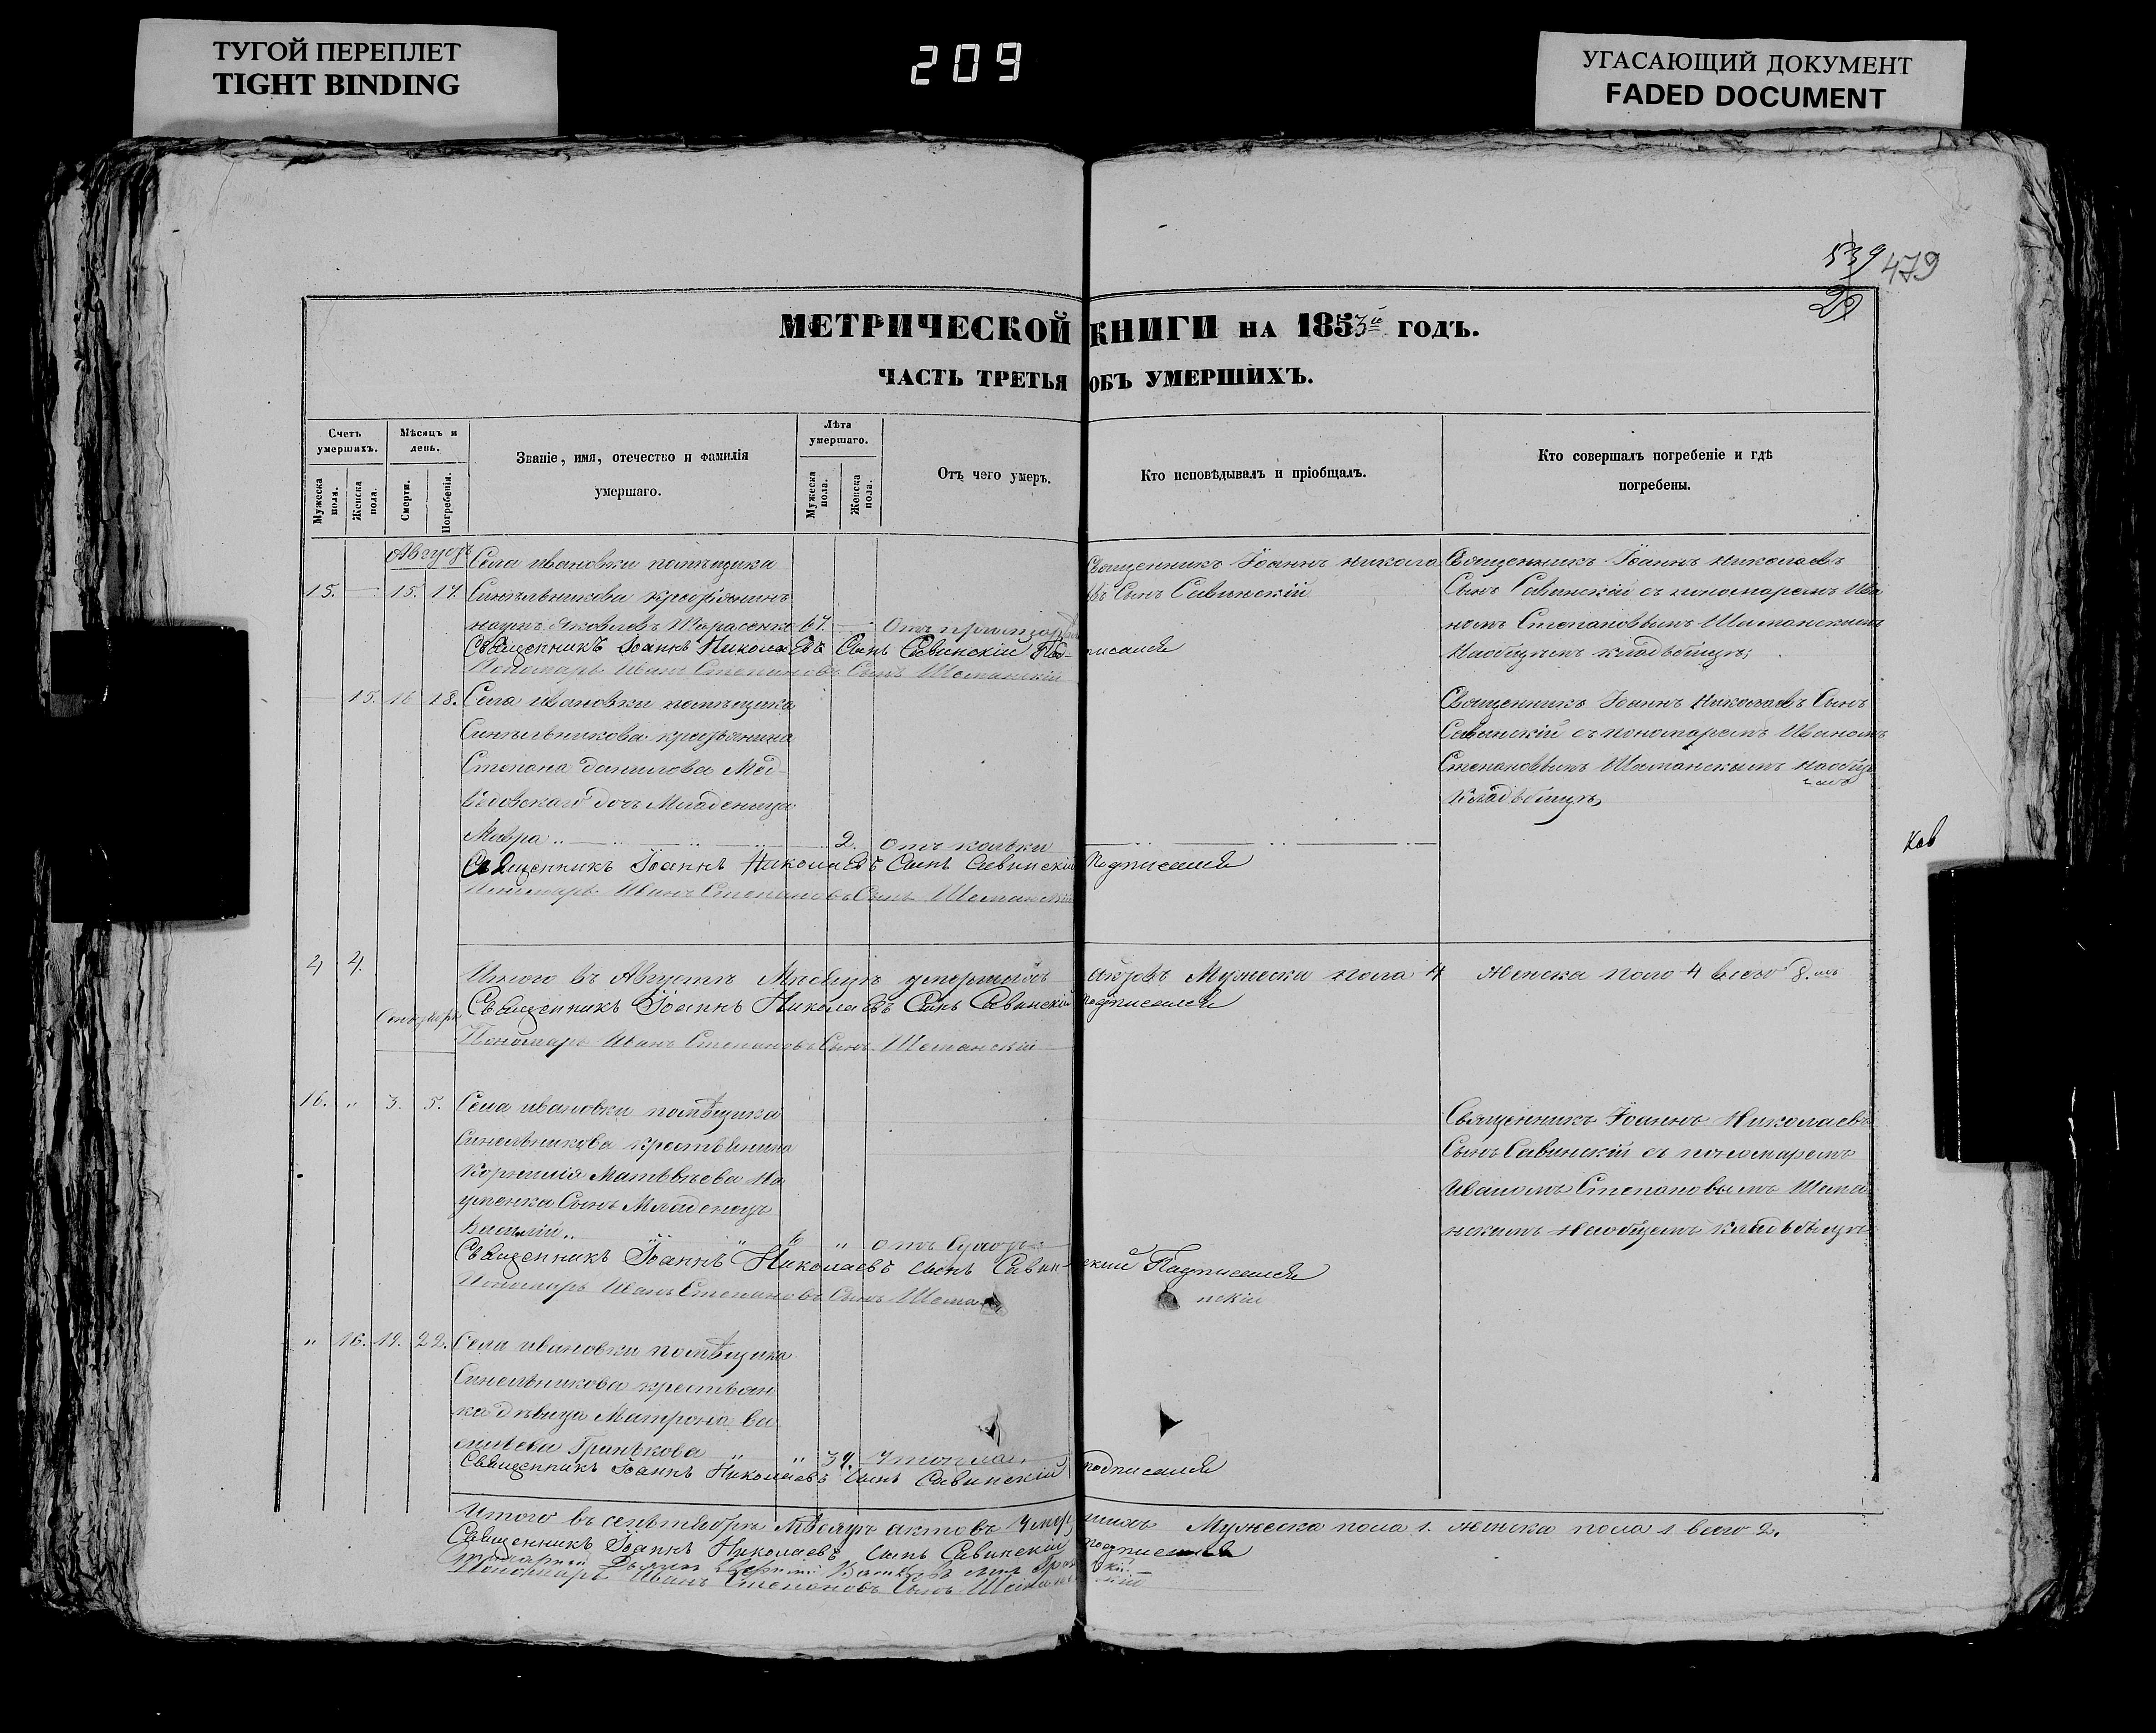 ТУГОЙ ПЕРЕПЛЕТ
TIGHT BINDING
209
УГАСАЮЩИЙ ДОКУМЕНТ
FADED DOCUMENT
539 479
29
МЕТРИЧЕСКОЙ КНИГИ НА 1853й ГОДЪ.
ЧАСТЬ ТРЕТЬЯ ОБЪ УМЕРШИХЪ.
Счетъ умершихъ.
Мужеска пола.
Женска пола.
Мѣсяцъ и день.
Смерти.
Погребенія.
Званіе, имя, отечество и фамилія умершаго.
Лѣта умершаго.
Мужеска пола.
Женска пола.
Отъ чего умеръ.
Кто исповѣдывалъ и пріобщалъ.
Кто совершалъ погребеніе и гдѣ погребены.
Августъ
15. — 15. 17.
Села ивановки помѣщика
Синѣльникова крестьянинъ
наумъ Яковлевъ Тарасенко 67. —
Священникъ Іоаннъ никола
евъ Сынъ Савинскій
Священникъ Іоаннъ николаевъ
Сынъ Савинскій съ пономаремъ Ива
номъ Степановымъ Шиманскимъ
Наобщемъ кладбищѣ;
Священникъ Іоаннъ Николаевъ Сынъ Савинскій Подписался
Пономарь Иванъ Степановъ Сынъ Шеманскій
— 15. 16 18.
Села ивановки помѣщика
Синѣльникова крестьянина
Степана данилова Мед-
ведовскаго дочь Младеница
Мавра 2. отъ
Священникъ Іоаннъ Николаевъ Сынъ
Савинскій съ пономаремъ Иваномъ
Степановымъ Шиманскимъ наобщ
кладбищѣ,
Священникъ Іоаннъ Николаевъ Сынъ Савинскій Подписался
Пономарь Иванъ Степановъ Сынъ Шеманскій
4 4.
Итого въ Августѣ Мѣсяцѣ умершихъ Мужеска пола 4 женска пола 4 всего 8.
Священникъ Іоаннъ Николаевъ Сынъ Савинскій подписался
Пономарь Иванъ Степановъ Сынъ Шеманскій
Сентябрь
16. „ 3. 5.
Села ивановки помѣщика
Синельникова крестьянина
Корнилія Матвѣева На
уменка Сынъ Младенецъ
Василій „ 6 „ отъ
Священникъ Іоаннъ Николаевъ
Сынъ Савинскій съ пономаремъ
Иваномъ Степановымъ Шема
нскимъ Наобщемъ кладбищѣ
Священникъ Іоаннъ Николаевъ сынъ Савинский Подписался
Пономарь Иванъ Степановъ Сынъ Шеманскій
„ 16. 19. 22.
Села ивановки помѣщика
Синельникова крестьян
ка дѣвица Матрона Ва
силѣева Гринѣкова „ „
Священникъ Іоаннъ Николаевъ Сынъ Савинскій подписался
Итого въ сентябрѣ Мѣсяцѣ актовъ умершихъ Мужеска пола 1. женска пола 1 всего 2.
Священникъ Іоаннъ Николаевъ сынъ Савинскій подписался
Пономарь Иванъ Степановъ Сынъ Шеманскій